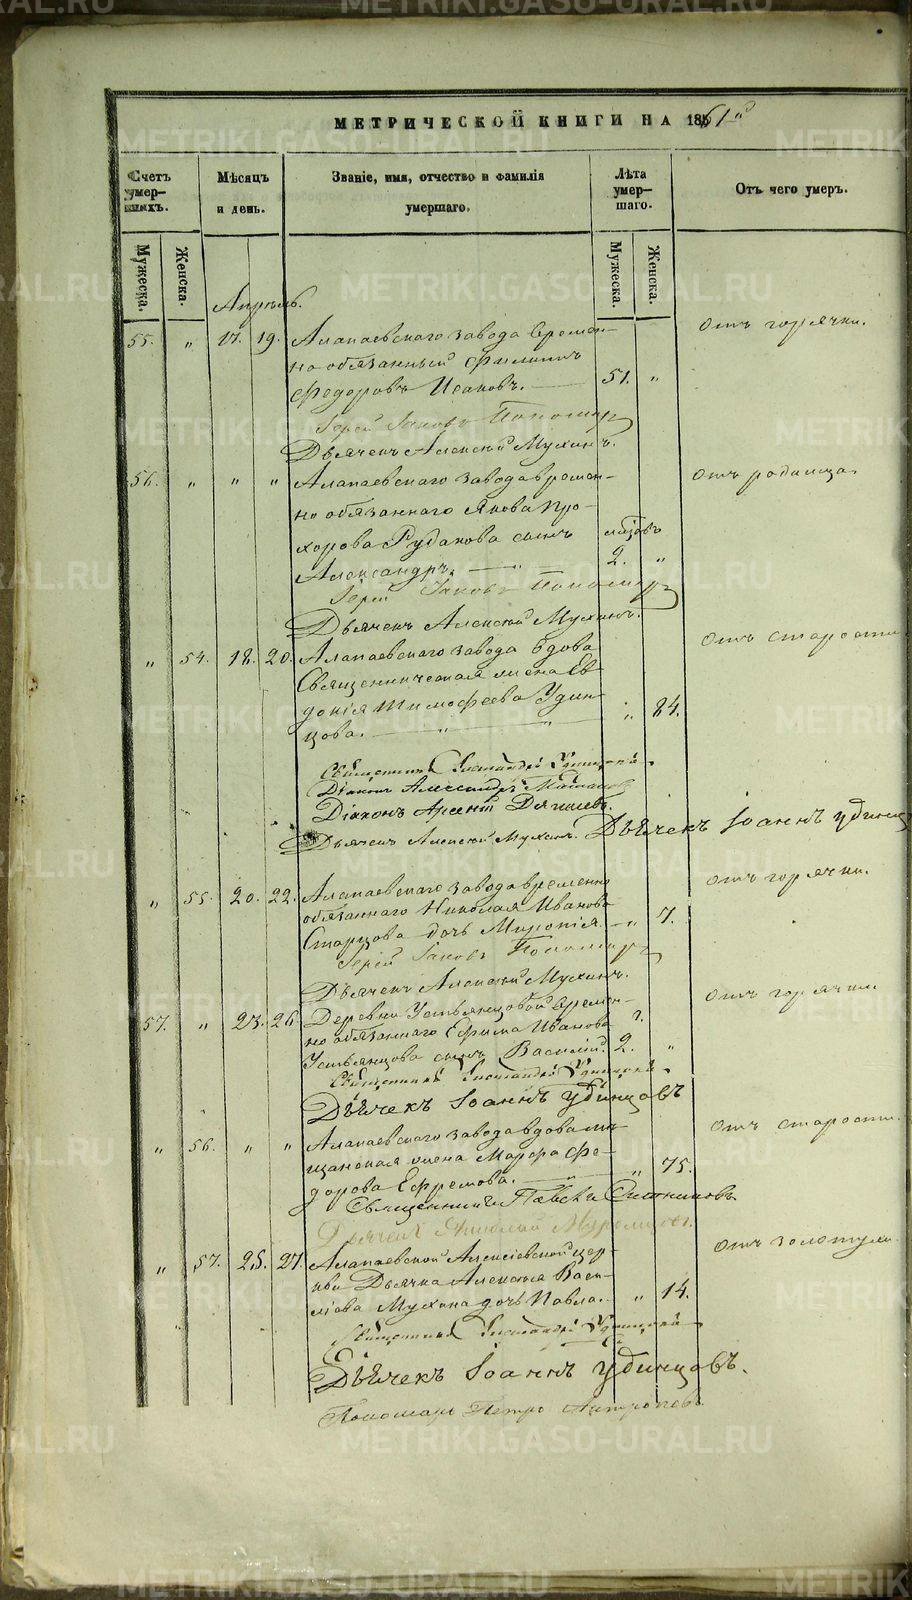 МЕТРИЧЕСКОЙ КНИГИ НА 1861й
Счетъ умершихъ.
Мѣсяцъ и день.
Званіе, имя, отчество и фамилія умершаго.
Лѣта умершаго.
Отъ чего умеръ.
Мужеска.
Женска.
Мужеска.
Женска.
Апрѣль.
55. " 17. 19. Алапаевскаго завода времен-
но обязанный Филиппъ
Федоровъ Исаковъ. 51. "
Отъ горячки.
Іерей Іаковъ Пономар
Дьячекъ Алексѣй Мухинъ.
56. " " " Алапаевскаго завода времен-
но обязаннаго Якова Про-
хорова Рудакова сынъ
Александръ. мѣсяц. 2. "
Отъ родимца.
Іерей Іаковъ Пономар
Дьячекъ Алексѣй Мухинъ.
" 54. 18. 20. Алапаевскаго завода вдова
Священническая жена Ев-
докія Тимофеева Удин-
цова. " 84.
Отъ старости
Священникъ Удинцовъ
Діаконъ Александръ
Діаконъ Арсеній Дягилевъ.
Дьячекъ Алексѣй Мухинъ. Дьячекъ Іоаннъ Удинцо
" 55. 20. 22. Алапаевскаго завода временно
обязаннаго Николая Иванова
Старцова дочь Миропія. " 7.
Отъ горячки.
Іерей Іаковъ Пономар
Дьячекъ Алексѣй Мухинъ.
57. " 23. 26. Деревни Устьянцовой времен-
но обязаннаго Ефима Иванова
Устьянцова сынъ Василій. г. 2. "
Отъ горячки
Священникъ Удинцовъ
Дьячекъ Іоаннъ Удинцовъ
" 56. " " Алапаевскаго завода вдова мѣ-
щанская жена Марфа Фе-
дорова Ефремова. " 75.
Отъ старости.
Священникъ Павелъ Ситниковъ
Дьячекъ
" 57. 25. 27. Алапаевской Алексіевской цер-
кви Дьячка Алексѣя Васи-
ліева Мухина дочь Павла. " 14.
Отъ золотухи.
Священникъ Удинцовъ
Дьячекъ Іоаннъ Удинцовъ.
Пономарь Петръ Антроповъ
METRIKI.GASO-URAL.RU